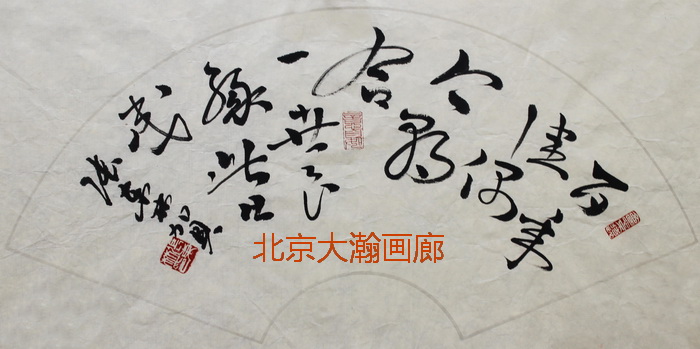 百年
佳偶
今朝
合
一世良
缘此日
成
北京大瀚画廊